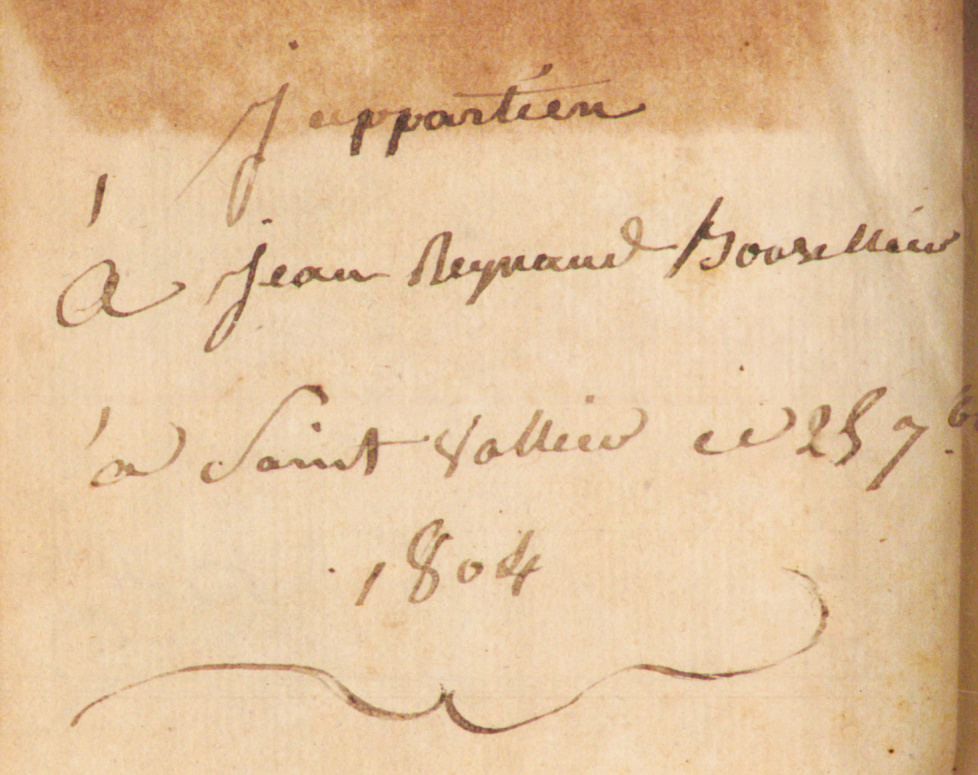 J'appartien
À Jean Reynaud Bourellier
à Saint Vallier ce 25 7b
1804